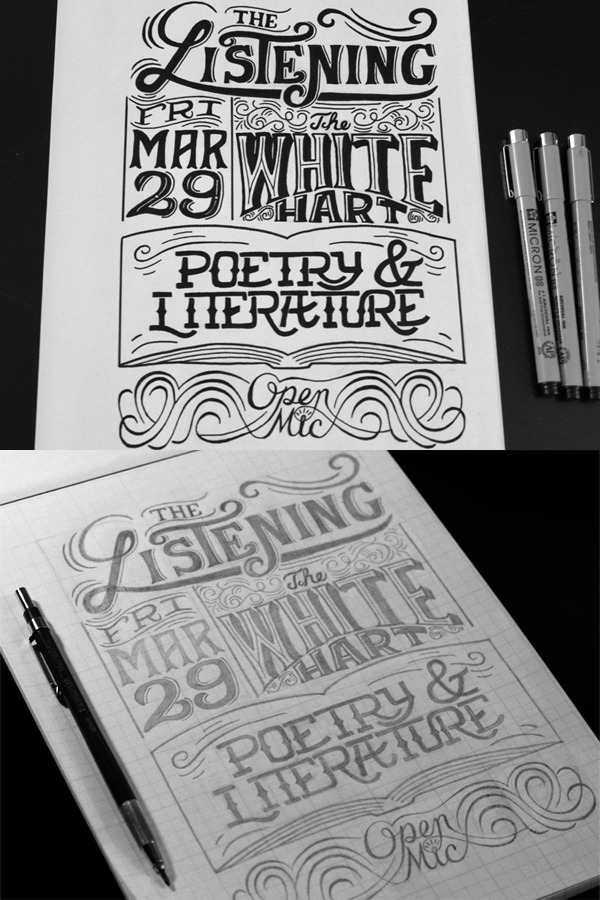 THE
LISTENING
FRI
MAR
29
The
WHITE
HART
POETRY &
LITERÆTURE
Open
Mic
MICRON 08
THE
LISTENING
FRI
MAR
29
The
WHITE
HART
POETRY &
LITERÆTURE
Open
Mic